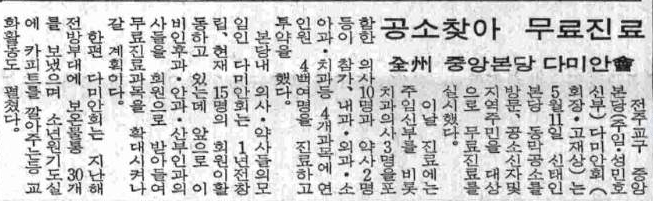 공소찾아 무료진료
全州 중앙본당 다미안會
전주교구 중앙
본당(주임·성민호
신부) 다미안회(
회장·고재상)는
5월 11일 신태인
본당 동막공소를
방문, 공소신자및
지역주민을 대상
으로 무료진료를
실시했다.
이날 진료에는
주임신부를 비롯
치과의사3명을포
함한 의사10명과 약사2명
등이 참가, 내과·외과·소
아과·치과등 4개과목에 연
인원 4백여명을 진료하고
투약을 했다.
본당내 의사·약사들의모
임인 다미안회는 1년전창
립, 현재 15명의 회원이활
동하고 있는데 앞으로 이
비인후과·안과·산부인과의
사들을 회원으로 받아들여
무료진료과목을 확대시켜나
갈 계획이다.
한편 다미안회는 지난해
전방부대에 보온물통 30개
를 보냈으며 소년원기도실
에 카피트를 깔아주는등 교
화활동도 펼쳤다.